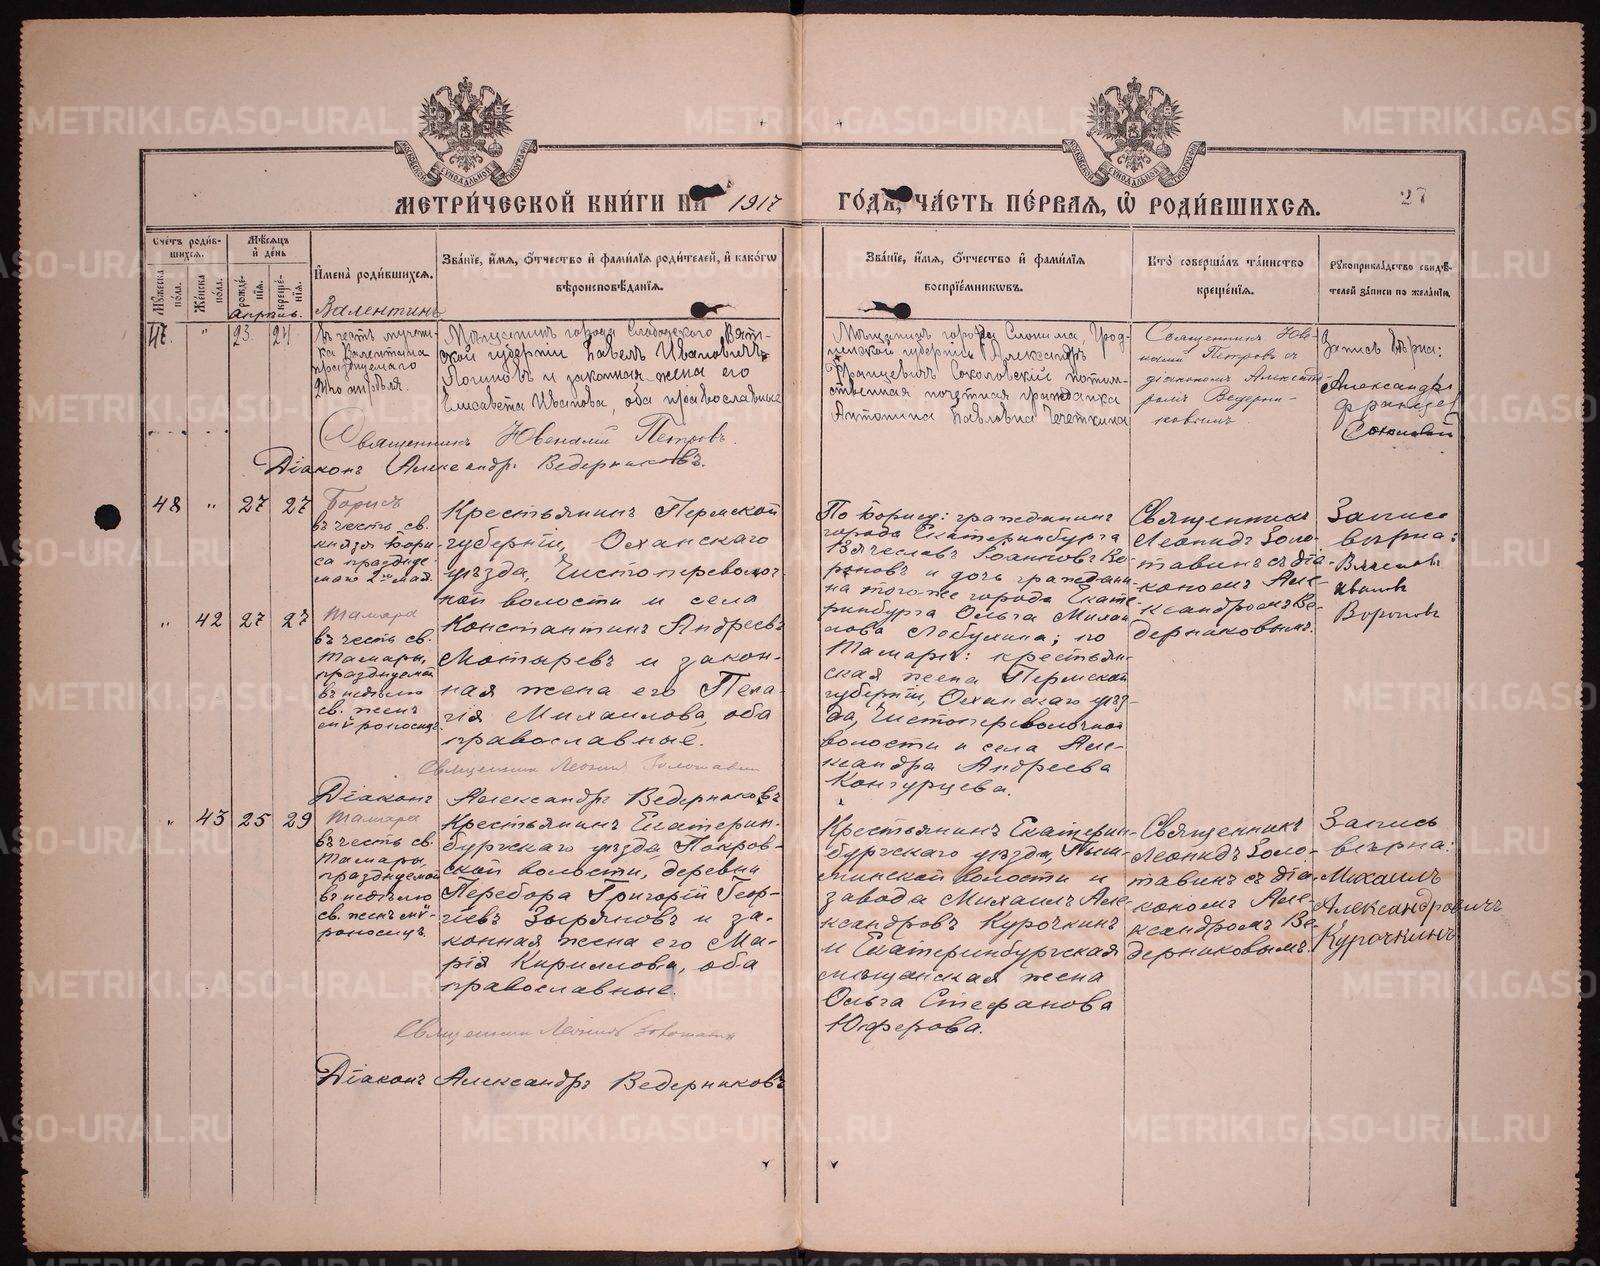 МЕТРИ́ЧЕСКОЙ КНИ́ГИ НА 1917 ГО́ДЪ, ЧА́СТЬ ПЕ́РВАЯ, Ѡ҆ РОДИ́ВШИХСЯ.
27
Сче́тъ роди́в-
шихся.
Му́жеска
по́ла.
Же́нска
по́ла.
Мѣ́сяцъ
и҆ де́нь
рожде́-
нїя.
креще́-
нїя.
И҆мена̀ роди́вшихся.
Зва́нїе, и҆́мя, ѻ҆́тчество и҆ фами́лїя роди́телей, и҆ како́гѡ
вѣроисповѣ́данїя.
Зва́нїе, и҆́мя, ѻ҆́тчество и҆ фами́лїя
воспрїе́мниковъ.
Кто̀ соверша́лъ та́инство
креще́нїя.
Рꙋкоприкла́дство свидѣ́-
телей за́писи по жела́нїю.
Апрѣль.
Валентинъ
47. " 23. 24.
въ честь мучени-
ка Валентина
празднуемаго
24го апрѣля.
Мѣщанинъ города Слободского Вят-
ской губерніи Павелъ Ивановичъ
Логиновъ и законная жена его
Елисавета Иванова, оба православные
Мѣщанинъ города Слонима, Грод-
ненской губерніи Александръ
Францевичъ Соколовскій потом-
ственная почетная гражданка
Антонина Павловна Чечеткина
Священникъ Юве-
налій Петровъ съ
діакономъ Александ-
ромъ Ведерни-
ковымъ.
Запись вѣрна:
Александръ
Францев
Соколовскій
Священникъ Ювеналій Петровъ.
Діаконъ Александръ Ведерниковъ.
48 " 27 27
Борисъ
въ честь св.
князя Бори-
са праздну-
емаго 2го мая.
" 42 27 27
Тамара
въ честь св.
Тамары,
празднуемой
въ недѣлю
св. женъ
мѵроносицъ.
Крестьянинъ Пермской
губерніи, Оханскаго
уѣзда, Чистопереволоч-
ной волости и села
Константинъ Андреевъ
Мотыревъ и закон-
ная жена его Пела-
гія Михаилова, оба
православные.
По Борису: гражданинъ
города Екатеринбурга
Вячеславъ Іоанновъ Во-
роновъ и дочь граждани-
на того же города Екате-
ринбурга Ольга Михаи-
лова Лобулина; по
Тамарѣ: крестьян-
ская жена Пермской
губерніи, Оханскаго уѣз-
да, Чистопереволочной
волости и села Але-
ксандра Андреева
Конгурцева.
Священникъ
Леонидъ Золо-
тавинъ съ діа-
кономъ Але-
ксандромъ Ве-
дерниковымъ.
Запись
вѣрна:
Вячеславъ
Ивановъ
Вороновъ
Священникъ Леонидъ Золотавинъ
Діаконъ Александръ Ведерниковъ
" 43 25 29
Тамара
въ честь св.
Тамары,
празднуемой
въ недѣлю
св. женъ мѵ-
роносицъ.
Крестьянинъ Екатерин-
бургскаго уѣзда, Покров-
ской волости, деревни
Перебора Григорій Геор-
гіевъ Зыряновъ и за-
конная жена его Ма-
рія Кириллова, оба
православные.
Крестьянинъ Екатерин-
бургскаго уѣзда, Пыш-
минской волости и
завода Михаилъ Але-
ксандровъ Курочкинъ
и Екатеринбургская
мѣщанская жена
Ольга Стефанова
Юферова.
Священникъ
Леонидъ Золо-
тавинъ съ діа-
кономъ Але-
ксандромъ Ве-
дерниковымъ.
Запись
вѣрна:
Михаилъ
Александровичъ
Курочкинъ
Священникъ Леонидъ Золотавинъ
Діаконъ Александръ Ведерниковъ
METRIKI.GASO-URAL.RU